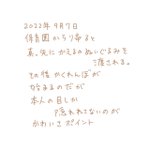 2022年9月7日
保育園から帰ると
真っ先にかえるのぬいぐるみを
渡される。
その後かくれんぼが
始まるのだが
本人の目しか
隠れれてないのが
かわいさポイント